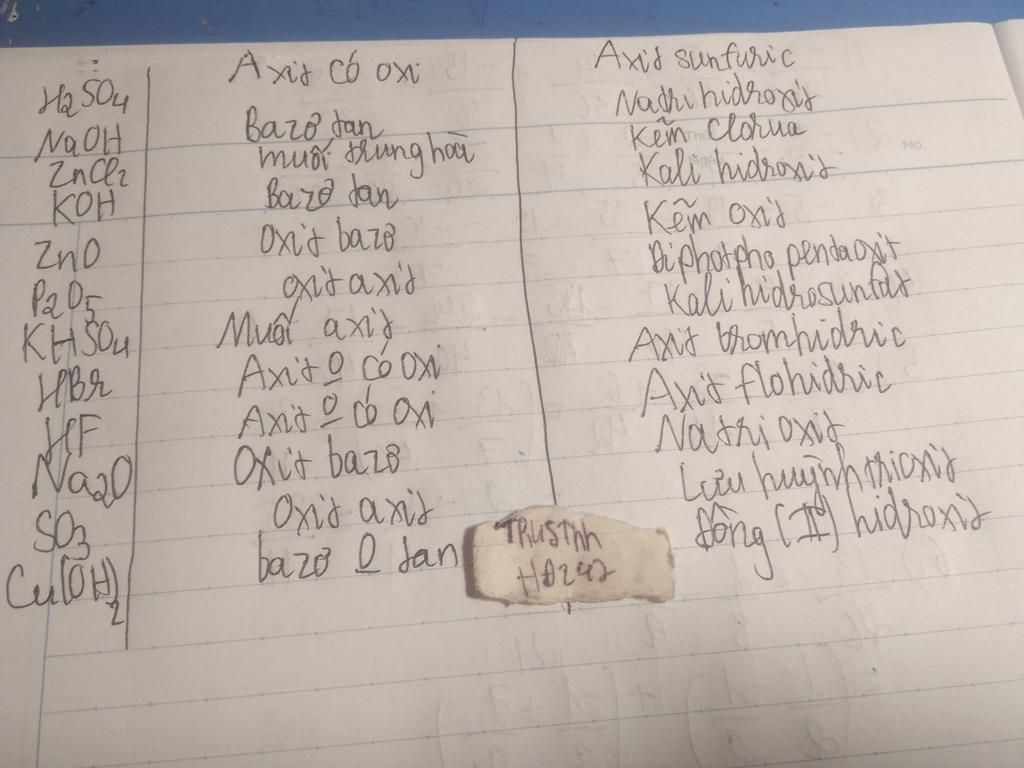 H2SO4 Axit có oxi Axit sunfuric
NaOH Bazơ tan Natri hidroxit
ZnCl2 muối trung hòa Kẽm Clorua
KOH Bazơ tan Kali hidroxit
ZnO Oxit bazơ Kẽm oxit
P2O5 oxit axit Điphotpho pentaoxit
KHSO4 Muối axit Kali hidrosunfat
HBr Axit O có oxi Axit bromhidric
HF Axit O có oxi Axit flohidric
Na2O Oxit bazơ Natri oxit
SO3 Oxit axit Lưu huỳnh trioxit
Cu(OH)2 bazơ O tan Đồng (II) hidroxit
TRUSTNN
HĐ247